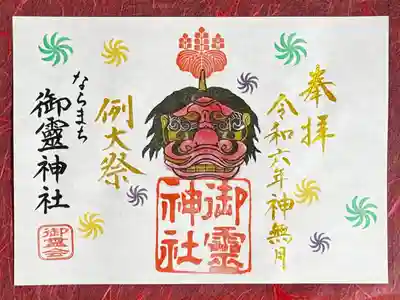 奉拝
令和六年神無月
御靈
神社
例大祭
ならまち
御靈神社
御霊会